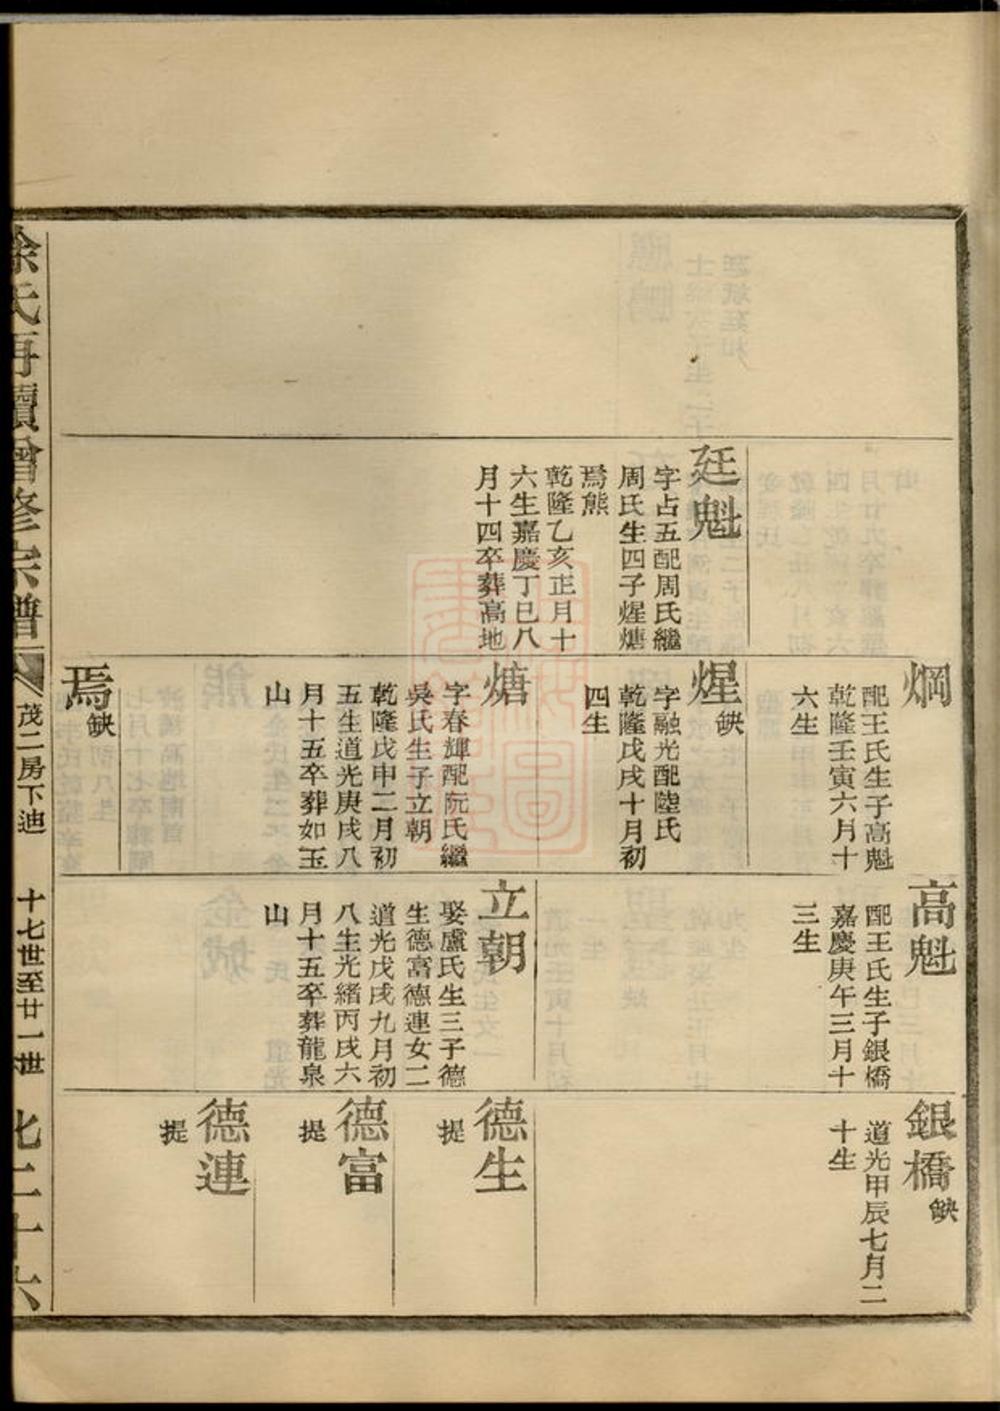 廷魁
字占五配周氏繼
周氏生四子煋煻
焉熊
乾隆乙亥正月十
六生嘉慶丁巳八
月十四卒葬高地
焵
配王氏生子高魁
乾隆壬寅六月十
六生
煋缺
字融光配陸氏
乾隆戊戌十月初
四生
煻
字春輝配阮氏繼
吳氏生子立朝
乾隆戊申二月初
五生道光庚戌八
月十五卒葬如玉
山
焉缺
高魁
配王氏生子銀橋
嘉慶庚午三月十
三生
立朝
娶盧氏生三子德
生德富德連女二
道光戊戌九月初
八生光緒丙戌六
月十五卒葬龍泉
山
銀橋缺
道光甲辰七月二
十生
德生
提
德富
提
德連
提
徐氏再續增修宗譜
茂二房下迪
十七世至廿一世
二十六